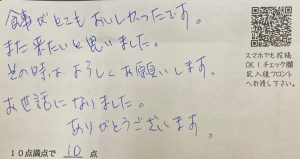 食事がとてもおいしかったです。
また来たいと思いました。
その時は よろしくお願いします。
お世話になりました。
ありがとうございます。
10点満点で 10 点
スマホでも投稿
OK！チェック欄
記入後フロント
へお渡し下さい。